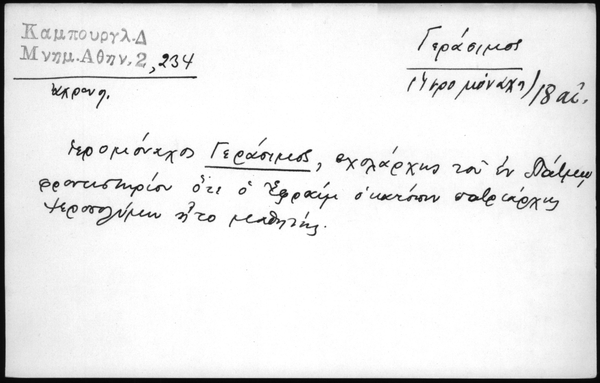 Καμπουργλ.Δ
Μνημ.Αθην.2, 234
Γεράσιμος
(ἱερομόναχ) 18 αἰ.
ἱερομόναχος Γεράσιμος, σχολάρχης τοῦ ἐν Πάτμῳ
φροντιστηρίου ὅτε ὁ Ἐφραὶμ ὁ κατόπιν πατριάρχης
Ἱεροσολύμων ἦτο μαθητής.